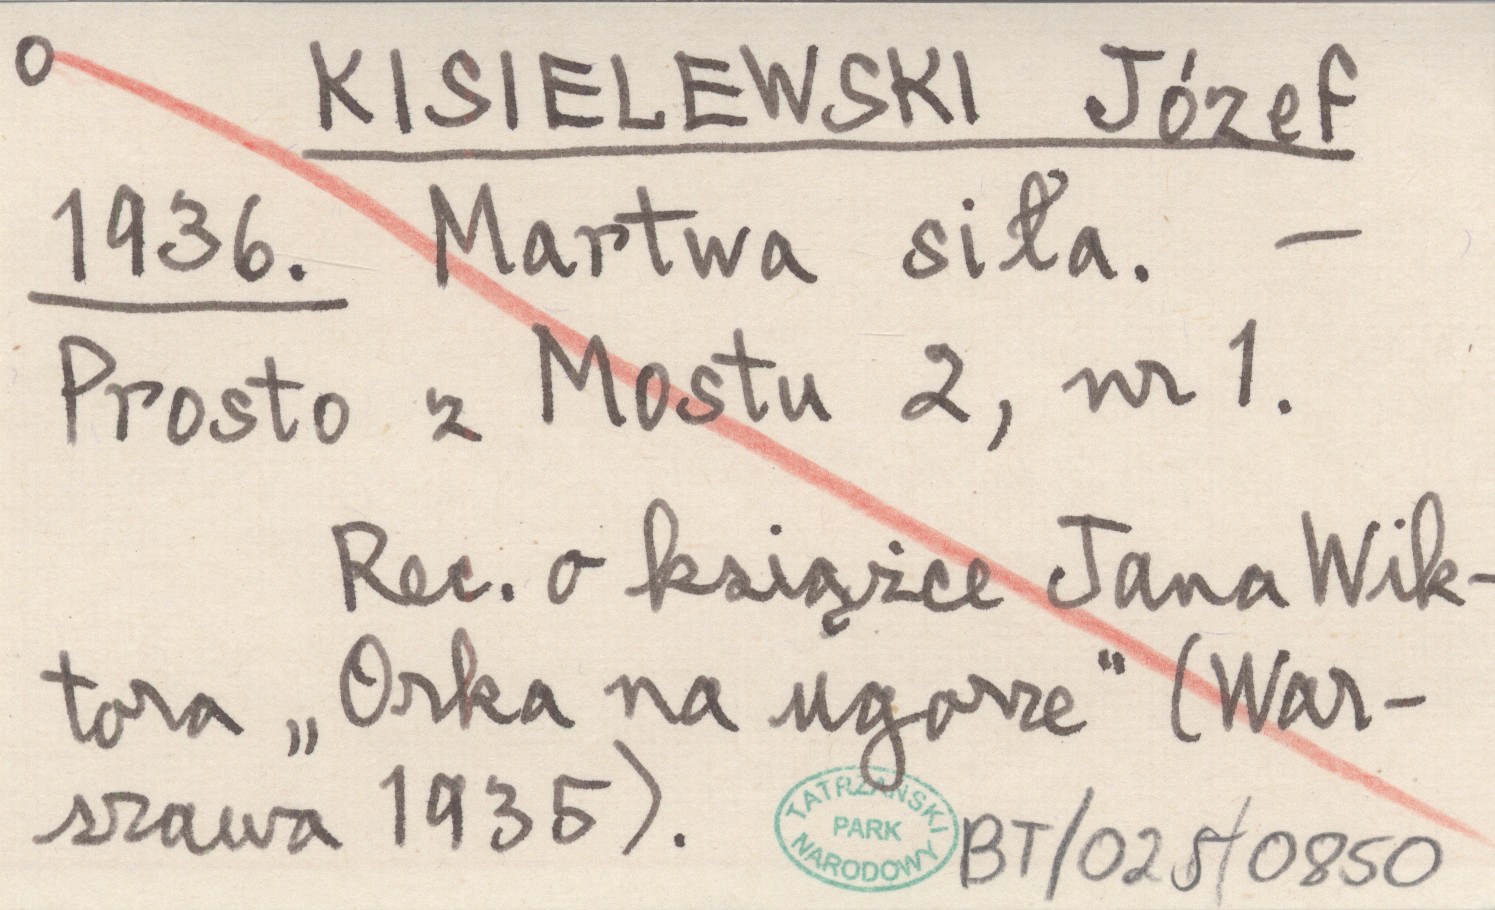 o KISIELEWSKI Józef
1936. Martwa siła. –
Prosto z Mostu 2, nr 1.
Rec. o książce Jana Wik-
tora „Orka na ugorze" (War-
szawa 1935).
TATRZAŃSKI
PARK
NARODOWY
BT/025/0850